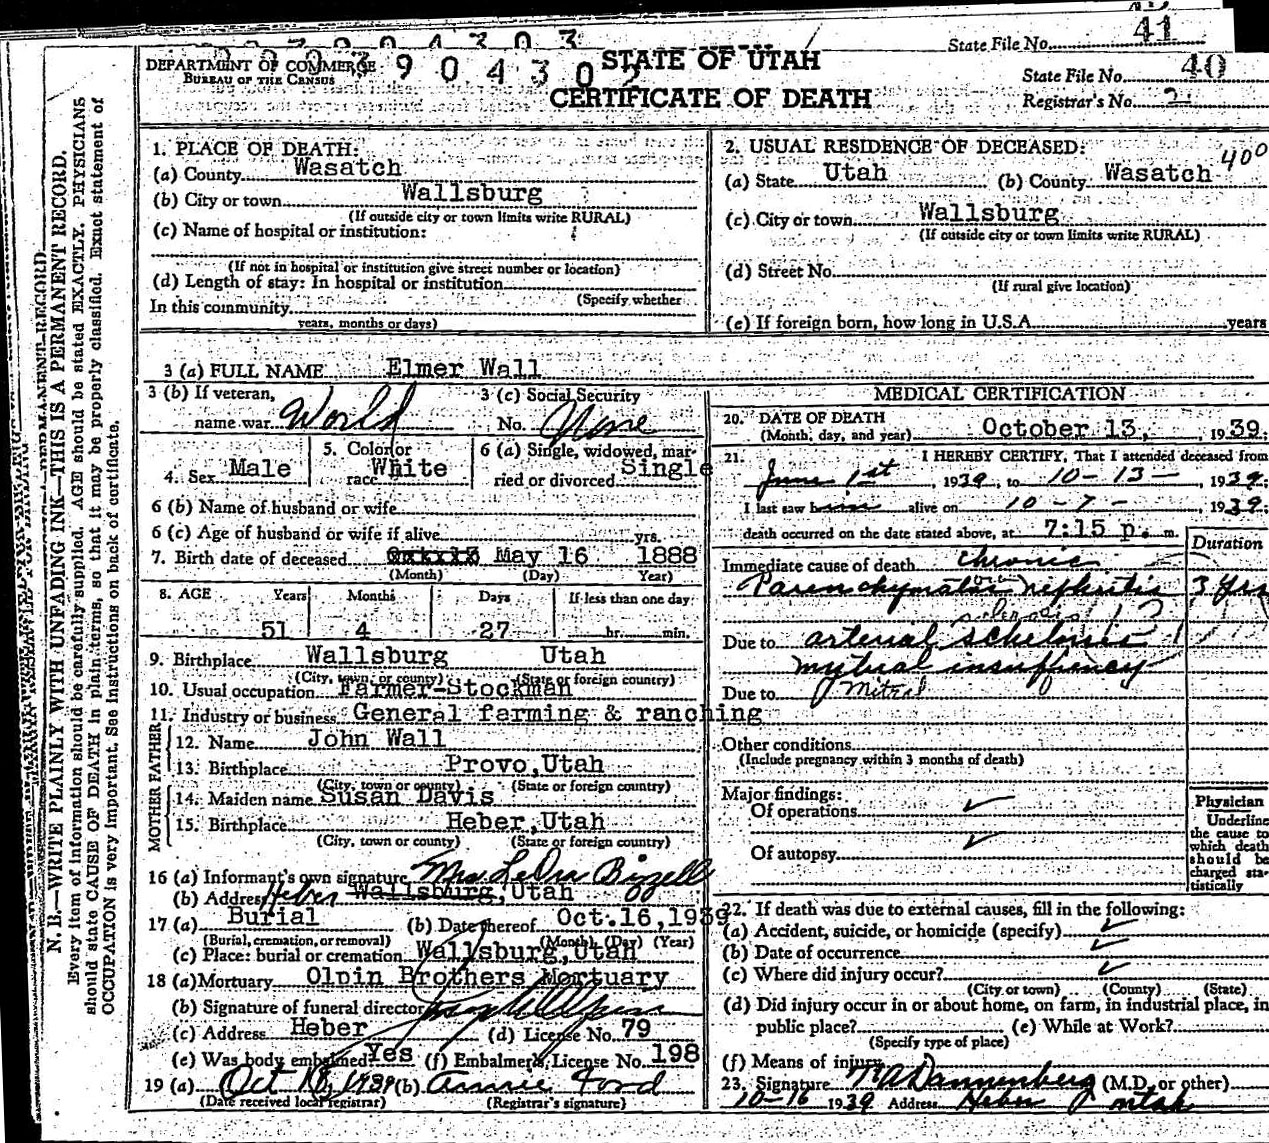 41
State File No.
DEPARTMENT OF COMMERCE
BUREAU OF THE CENSUS
9 0 4 3 0 2
STATE OF UTAH
CERTIFICATE OF DEATH
State File No. 40
Registrar's No. 2
1. PLACE OF DEATH:
(a) County Wasatch
(b) City or town Wallsburg
(If outside city or town limits write RURAL)
(c) Name of hospital or institution:
(If not in hospital or institution give street number or location)
(d) Length of stay: In hospital or institution
(Specify whether
In this community
years, months or days)
2. USUAL RESIDENCE OF DECEASED: 400
(a) State Utah (b) County Wasatch
(c) City or town Wallsburg
(If outside city or town limits write RURAL)
(d) Street No.
(If rural give location)
(e) If foreign born, how long in U.S.A. years
3 (a) FULL NAME Elmer Wall
3 (b) If veteran, name war World
3 (c) Social Security No. None
4. Sex Male
5. Color or race White
6 (a) Single, widowed, married or divorced Single
6 (b) Name of husband or wife
6 (c) Age of husband or wife if alive yrs.
7. Birth date of deceased May 16 1888
(Month) (Day) Year)
8. AGE Years Months Days If less than one day
51 4 27 hr. min.
9. Birthplace Wallsburg Utah
(City, town, or county) (State or foreign country)
10. Usual occupation Farmer-Stockman
11. Industry or business General farming & ranching
FATHER
12. Name John Wall
13. Birthplace Provo, Utah
(City, town or county) (State or foreign country)
MOTHER
14. Maiden name Susan Davis
15. Birthplace Heber, Utah
(City, town or county) (State or foreign country)
16 (a) Informant's own signature Mrs. LeOra Bizzell
(b) Address Heber Wallsburg, Utah
17 (a) Burial (b) Date thereof Oct. 16, 1939
(Burial, cremation, or removal) (Month) (Day) (Year)
(c) Place: burial or cremation Wallsburg, Utah
18 (a) Mortuary Olpin Brothers Mortuary
(b) Signature of funeral director
(c) Address Heber (d) License No. 79
(e) Was body embalmed Yes (f) Embalmer's License No. 198
19 (a) Oct 18, 1939 (b) Annie Ford
(Date received local registrar) (Registrar's signature)
MEDICAL CERTIFICATION
20. DATE OF DEATH
(Month, day, and year) October 13, 1939;
21. I HEREBY CERTIFY, That I attended deceased from
June 1st, 1939, to 10-13-, 1939;
I last saw him alive on 10-7-, 1939;
death occurred on the date stated above, at 7:15 p. m.
Duration
Immediate cause of death chronic
Parenchymatous nephritis 3 Yrs
sclerosis ?
Due to arterial
mytual insuffiency
Due to Mitral
Other conditions
(Include pregnancy within 3 months of death)
Major findings:
Of operations ✓
Of autopsy ✓
Physician
Underline
the cause to
which death
should be
charged sta-
tistically
22. If death was due to external causes, fill in the following:
(a) Accident, suicide, or homicide (specify) ✓
(b) Date of occurrence ✓
(c) Where did injury occur? ✓
(City or town) (County) (State)
(d) Did injury occur in or about home, on farm, in industrial place, in
public place? (e) While at Work?
(Specify type of place)
(f) Means of injury
23. Signature Dannenberg (M.D. or other)
10-16 1939 Address Heber Utah
N. B.—WRITE PLAINLY WITH UNFADING INK—THIS IS A PERMANENT RECORD.
Every item of information should be carefully supplied. AGE should be stated EXACTLY. PHYSICIANS
should state CAUSE OF DEATH in plain terms, so that it may be properly classified. Exact statement of
OCCUPATION is very important. See instructions on back of certificate.